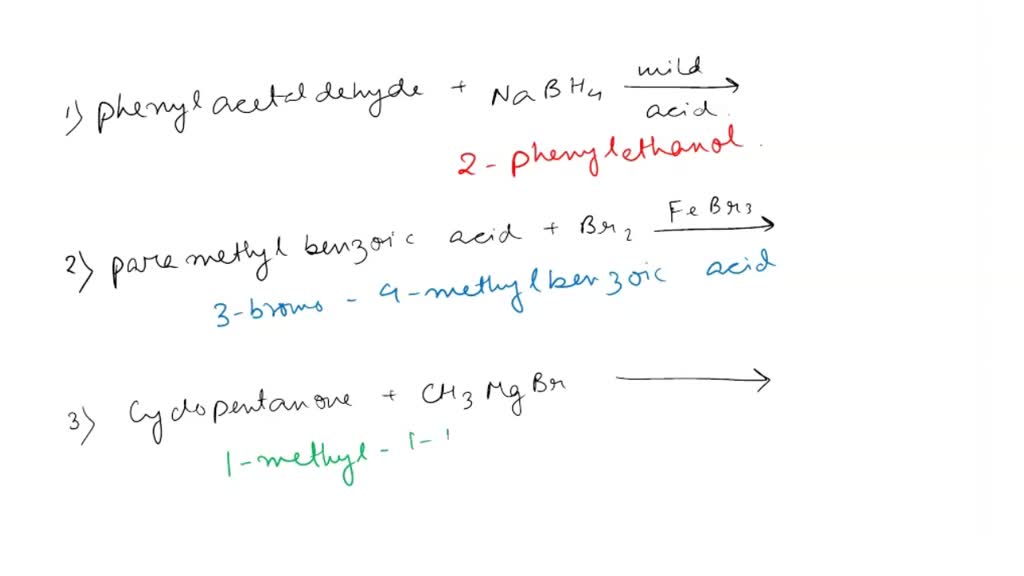 1) phenylacetaldehyde + NaBH4 mild
acid.
2-phenylethanol.
2) para methyl benzoic acid + Br2 FeBr3
3-bromo-4-methylbenzoic acid
3) Cyclopentanone + CH3MgBr
1-methyl-1-